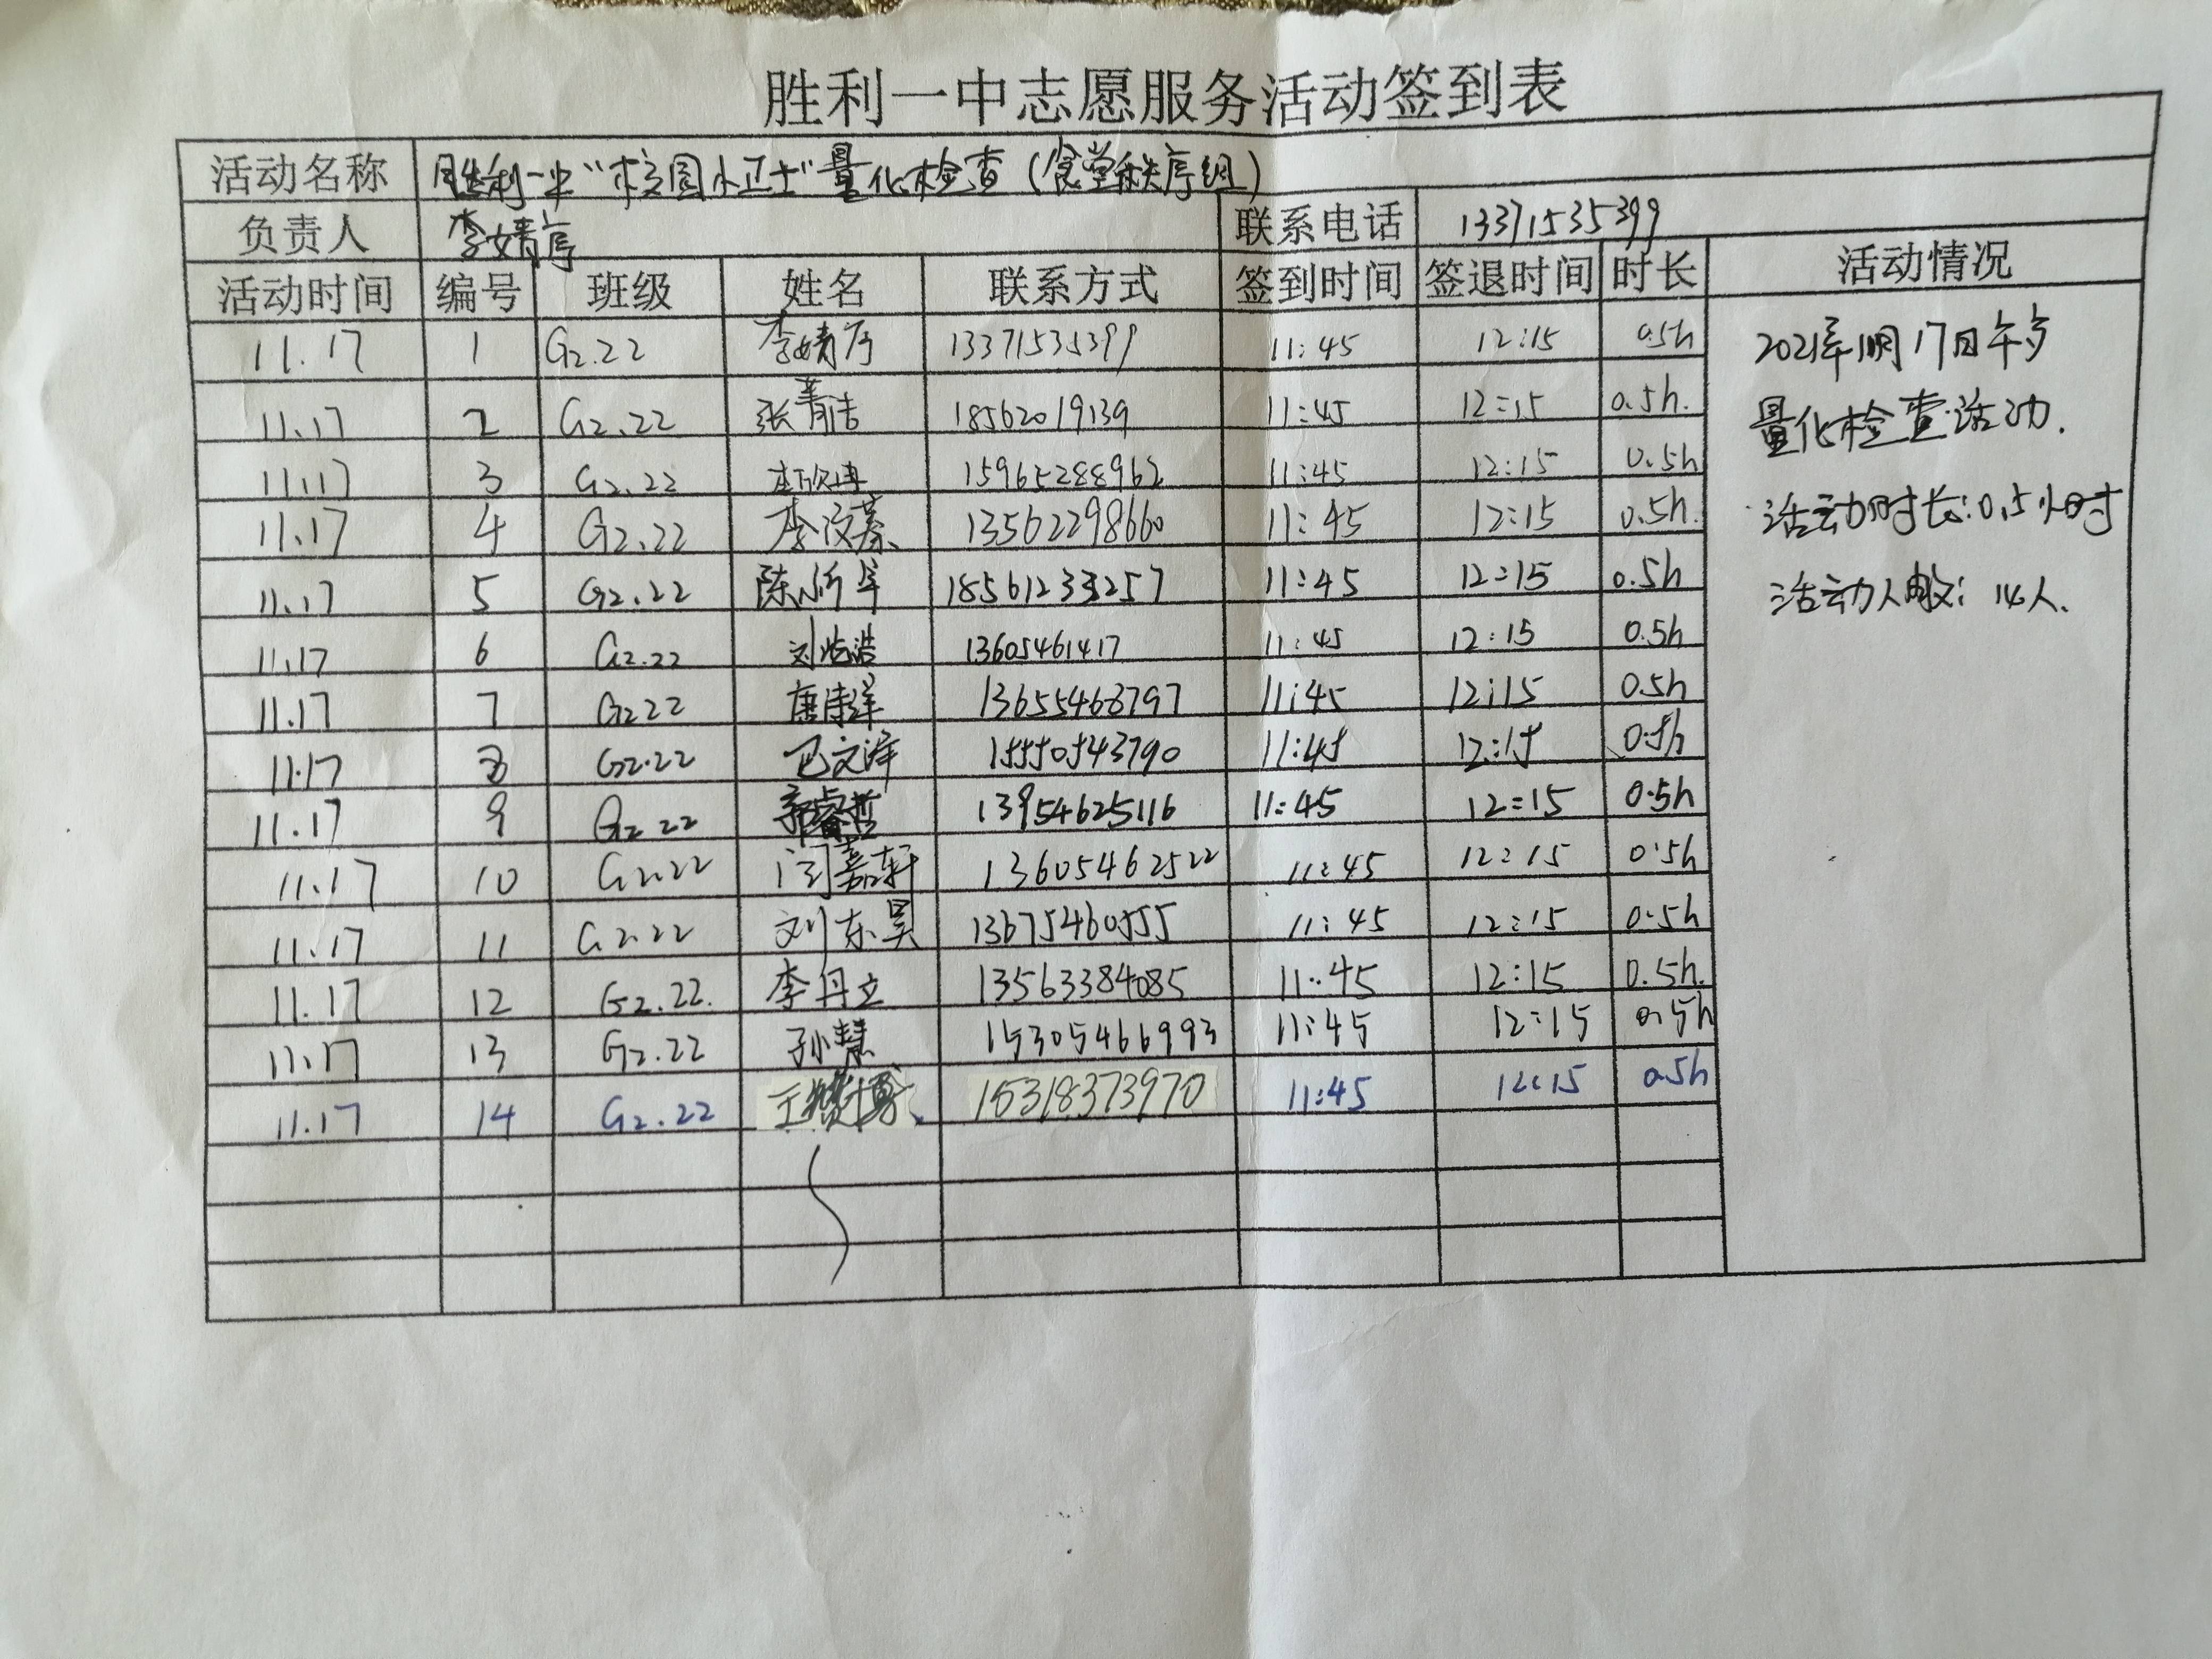 胜利一中志愿服务活动签到表
活动名称 胜利一中“校园小卫士”量化检查(食堂秩序组)
负责人 李婧序 联系电话 13371535399
活动时间 编号 班级 姓名 联系方式 签到时间 签退时间 时长 活动情况
11.17 1 G2.22 李婧序 13371535399 11:45 12:15 0.5h
11.17 2 G2.22 张菁洁 18562019139 11:45 12:15 0.5h.
11.17 3 G2.22 15965288962 11:45 12:15 0.5h
11.17 4 G2.22 13562298660 11:45 12:15 0.5h.
11.17 5 G2.22 11:45 12:15 0.5h
11.17 6 G2.22 13605461417 11:45 12:15 0.5h
11.17 7 G2.22 13655468797 11:45 12:15 0.5h
11.17 8 G2.22 巴文泽 15550543790 11:45 12:15 0.5h
11.17 9 G2.22 郭睿哲 13954625116 11:45 12:15 0.5h
11.17 10 G2.22 闫嘉轩 13605462522 11:45 12:15 0.5h
11.17 11 G2.22 刘东昊 13675460555 11:45 12:15 0.5h
11.17 12 G2.22. 李丹立 13563384085 11:45 12:15 0.5h.
11.17 13 G2.22 孙慧 15305466993 11:45 12:15 0.5h
11.17 14 G2.22 15318373970 11:45 12:15 0.5h
2021年11月17日午岁
量化检查活动.
活动时长:0.5小时
活动人数: 14人.